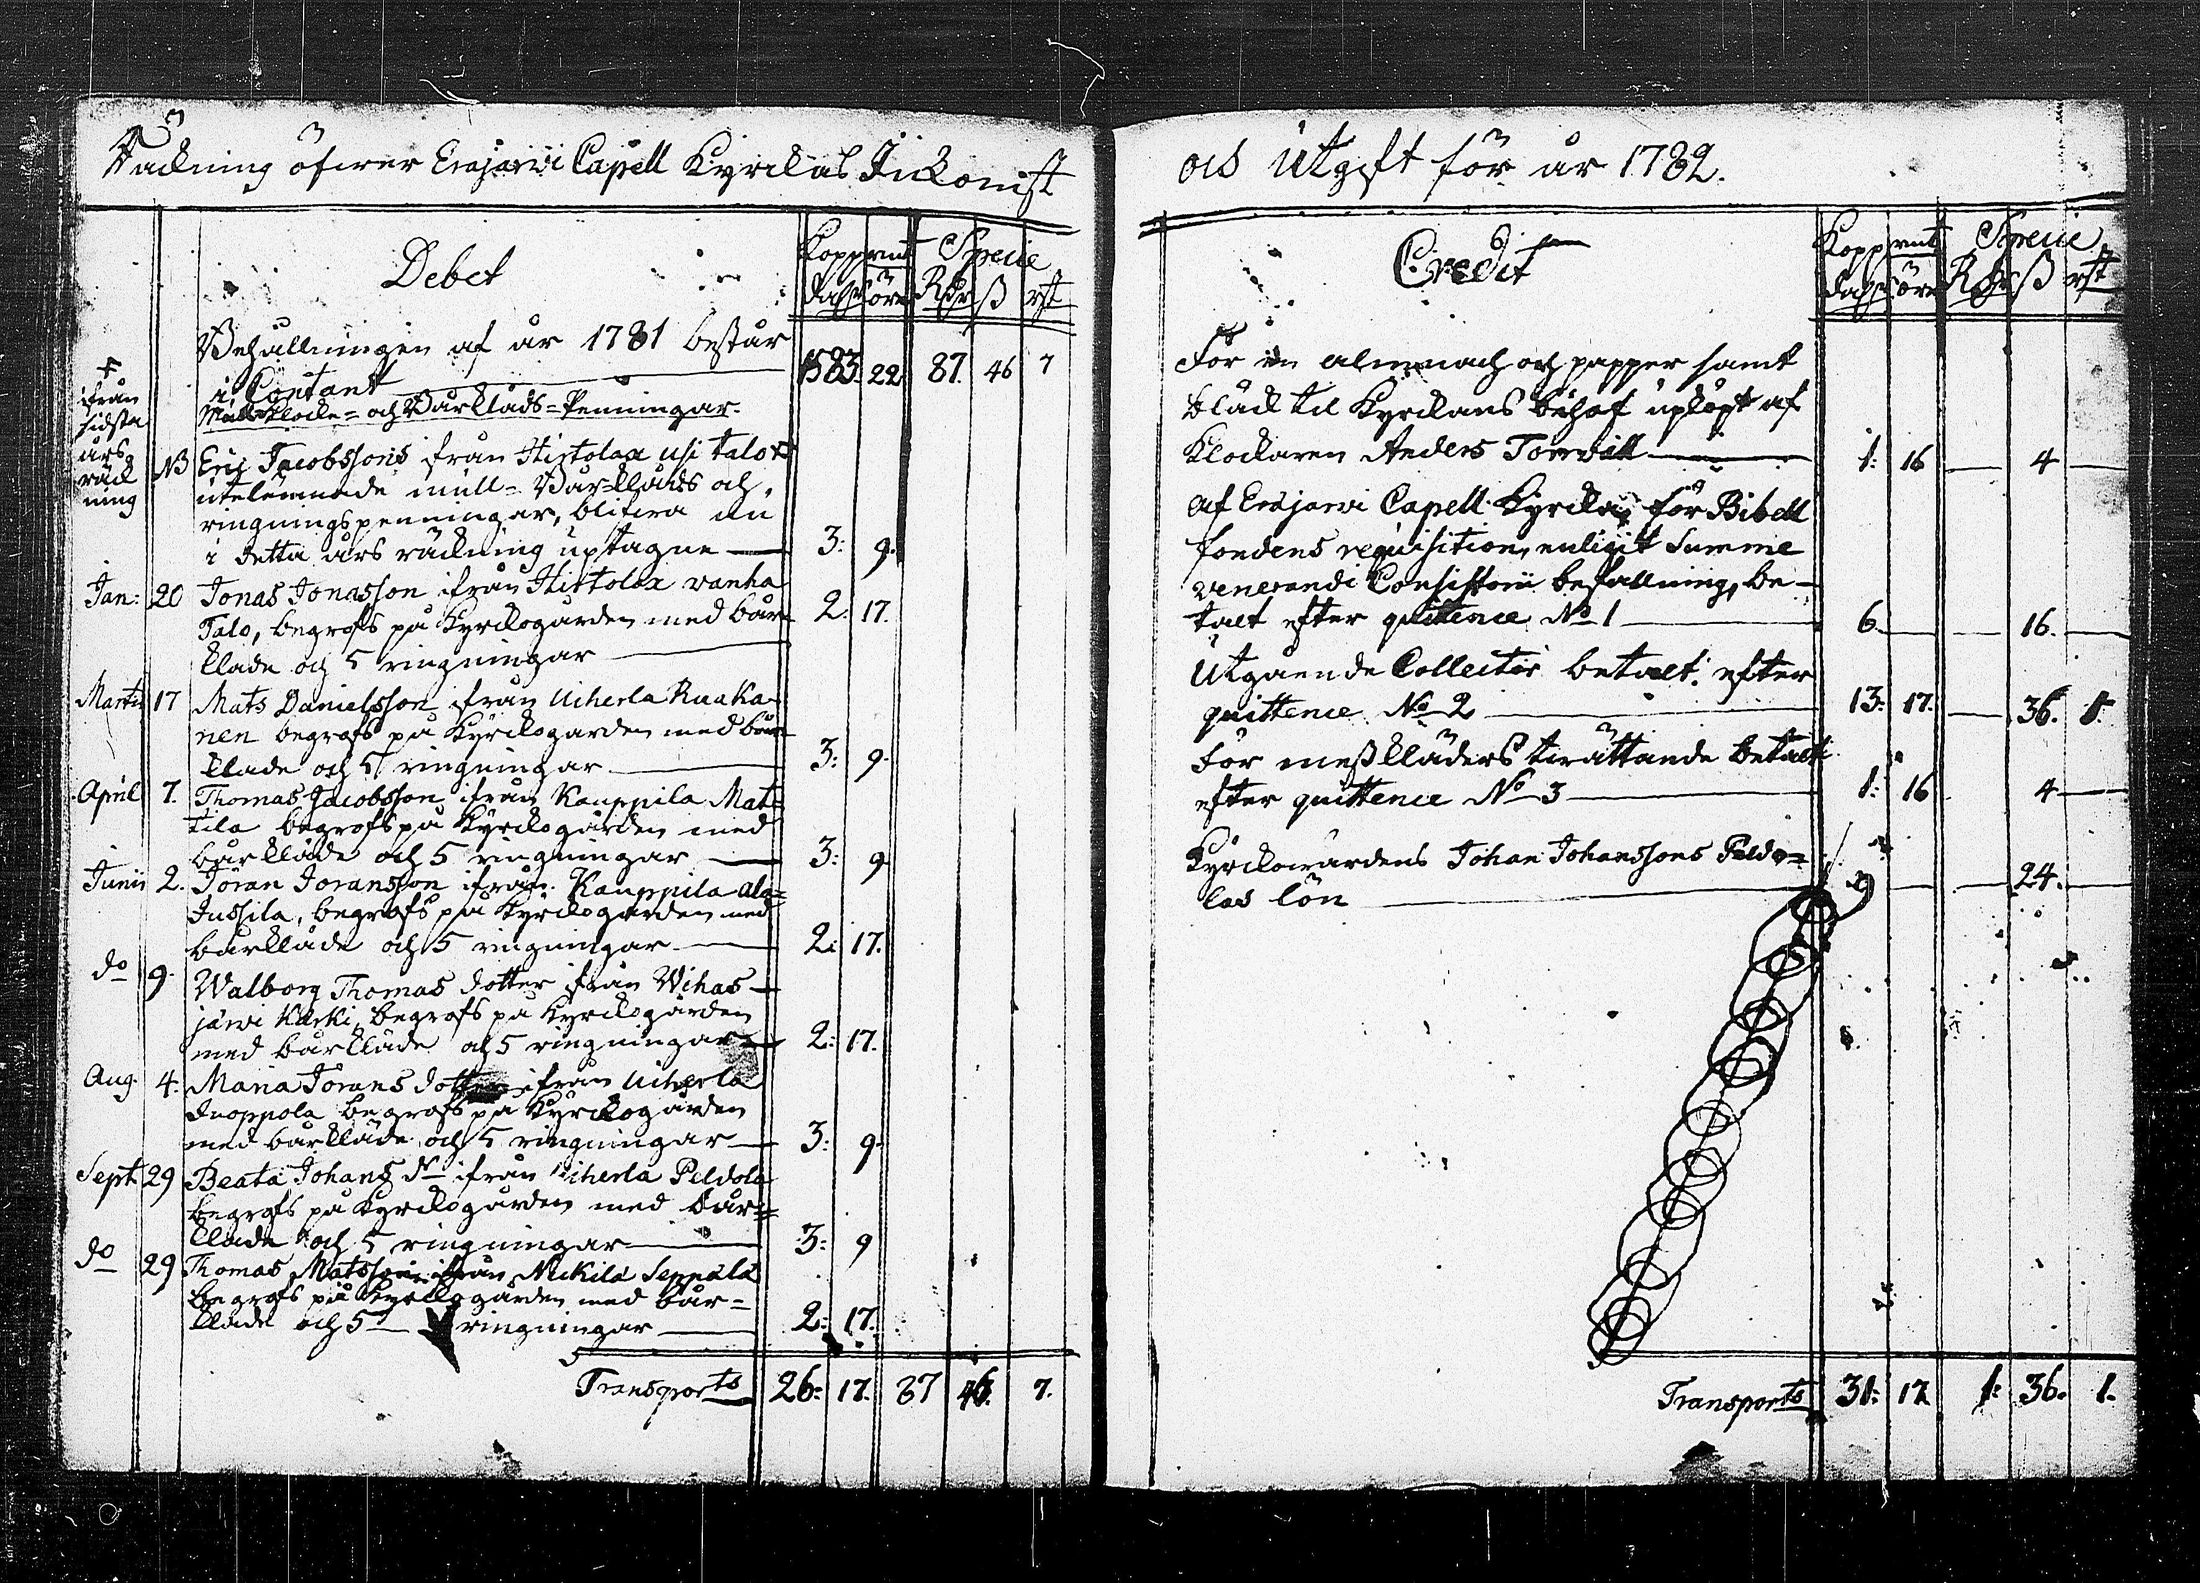 Räckning öfwer Erajärwi Capell Kyrckas Inkomst
Debet
Koppmt Specie
dahlr öre Rdr ß rst
Behållningen af år 1781 består
i Contant 1583. 22 87. 46 7
Mull- Klocke- och Bårkläds-Penningar.
ifrån
sidsta
års
räck
ning
NB Eric Jacobssons ifrån Hirtolax usi talo
utelemnade mull- Bar-kläds och
ringningspenningar, blifwa nu
i detta års räckning uptagne 3: 9.
Jan: 20 Jonas Jonasson ifrån Hirtolax vanha
Talo, begrofs på Kyrckogården med bår- 2. 17.
kläde och 5 ringningar
Martii 17 Mats Danielsson ifrån Uiherla Ruuka-
nen begrofs på Kyrckogården med bår-
kläde och 5 ringningar 3: 9.
April 7. Thomas Jacobsson ifrån Kauppila Mat-
tila begrofs på Kyrckogården med
bårkläde och 5 ringningar 3: 9
Junii 2. Jöran Joransson ifrån Kauppila ala-
Jussila, begrofs på Kyrckogården med
bårkläde och 5 ringningar 2: 17.
do 9. Walborg Thomas dotter ifrån Wihas-
järwi Kärki, begrofs på Kyrckogården
med bårkläde och 5 ringningar 2: 17.
Aug. 4. Maria Jörans dotter ifrån Uiherla
Duoppola begrofs på Kyrckogården
med bårkläde och 5 ringningar 3: 9.
Sept 29 Beata Johans dr ifrån Uiherla Peldola
begrofs på Kyrckogården med bår-
kläde och 5 ringningar 3: 9
do 29 Thomas Matsson ifrån Nickilä Seppälä
begrofs på Kyrckogården med bår-
kläde och 5 ringningar 2: 17.
Transports 26: 17. 87 46. 7.
och Utgift för år 1782.
Credit
Koppmt Specie
dahlr öre Rdr ß rst
För en almnach och papper samt
bläck til Kyrckans behof upköpt af
Klockaren Anders Tornvill 1: 16 4
af Erajärwi Capell Kyrcka för Bibell
fondens requisition, enligit Summe
venerandi Consistorii befallning, be-
talt efter quittence No 1 6. 16.
Utgående Collecter betalt efter
quittence No 2 13: 17. 36. 1.
För messkläders twättande betalt
efter quittence No 3 1: 16 4
Kyrckowärdens Johan Johanssons Peldo-
las lön 9 24.
Transports 31: 17 1: 36. 1.